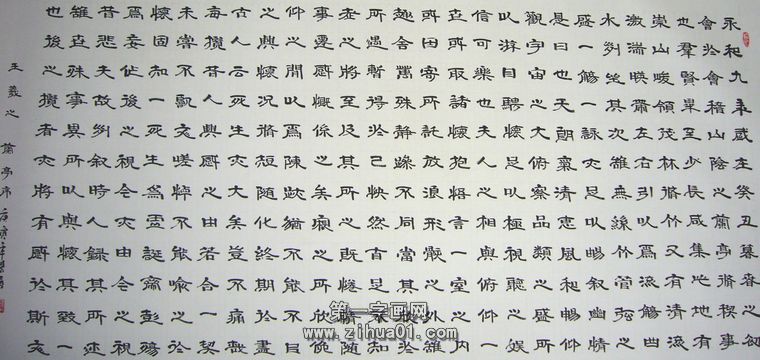 永和九年歲在癸丑暮春之初
會於會稽山陰之蘭亭脩禊事
也羣賢畢至少長咸集此地有
崇山峻領茂林脩竹又有清流
激湍映帶左右引以為流觴曲
水列坐其次雖無絲竹管弦之
盛一觴一詠亦足以暢敘幽情
是日也天朗氣清惠風和暢仰
觀宇宙之大俯察品類之盛所
以游目騁懷足以極視聽之娛
信可樂也夫人之相與俯仰一
世或取諸懷抱悟言一室之內
或因寄所託放浪形骸之外雖
趣舍萬殊靜躁不同當其欣於
所遇暫得於己快然自足不知
老之將至及其所之既惓情隨
事遷感慨係之矣向之所欣俛
仰之閒以為陳跡猶不能不以
之興懷況脩短隨化終期於盡
古人云死生亦大矣豈不痛哉
每攬昔人興感之由若合一契
未嘗不臨文嗟悼不能喻之於
懷固知一死生為虛誕齊彭殤
為妄作後之視今亦由今之視
昔悲夫故列敘時人錄其所述
雖世殊事異所以興懷其致一
也後之攬者亦將有感於斯文
王羲之 蘭亭序
第一字画网
www.zihua01.com